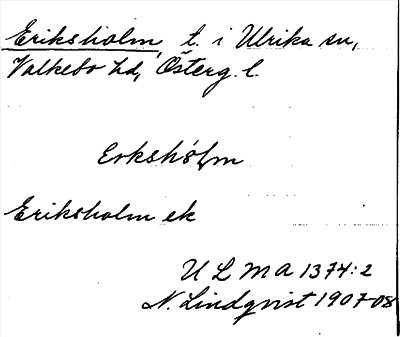 Eriksholm, t. i Ulrika sn,
Valkebo hd, Österg. l.
Eriksholm ek
U L M A 1374:2
N. Lindqvist 1907-08